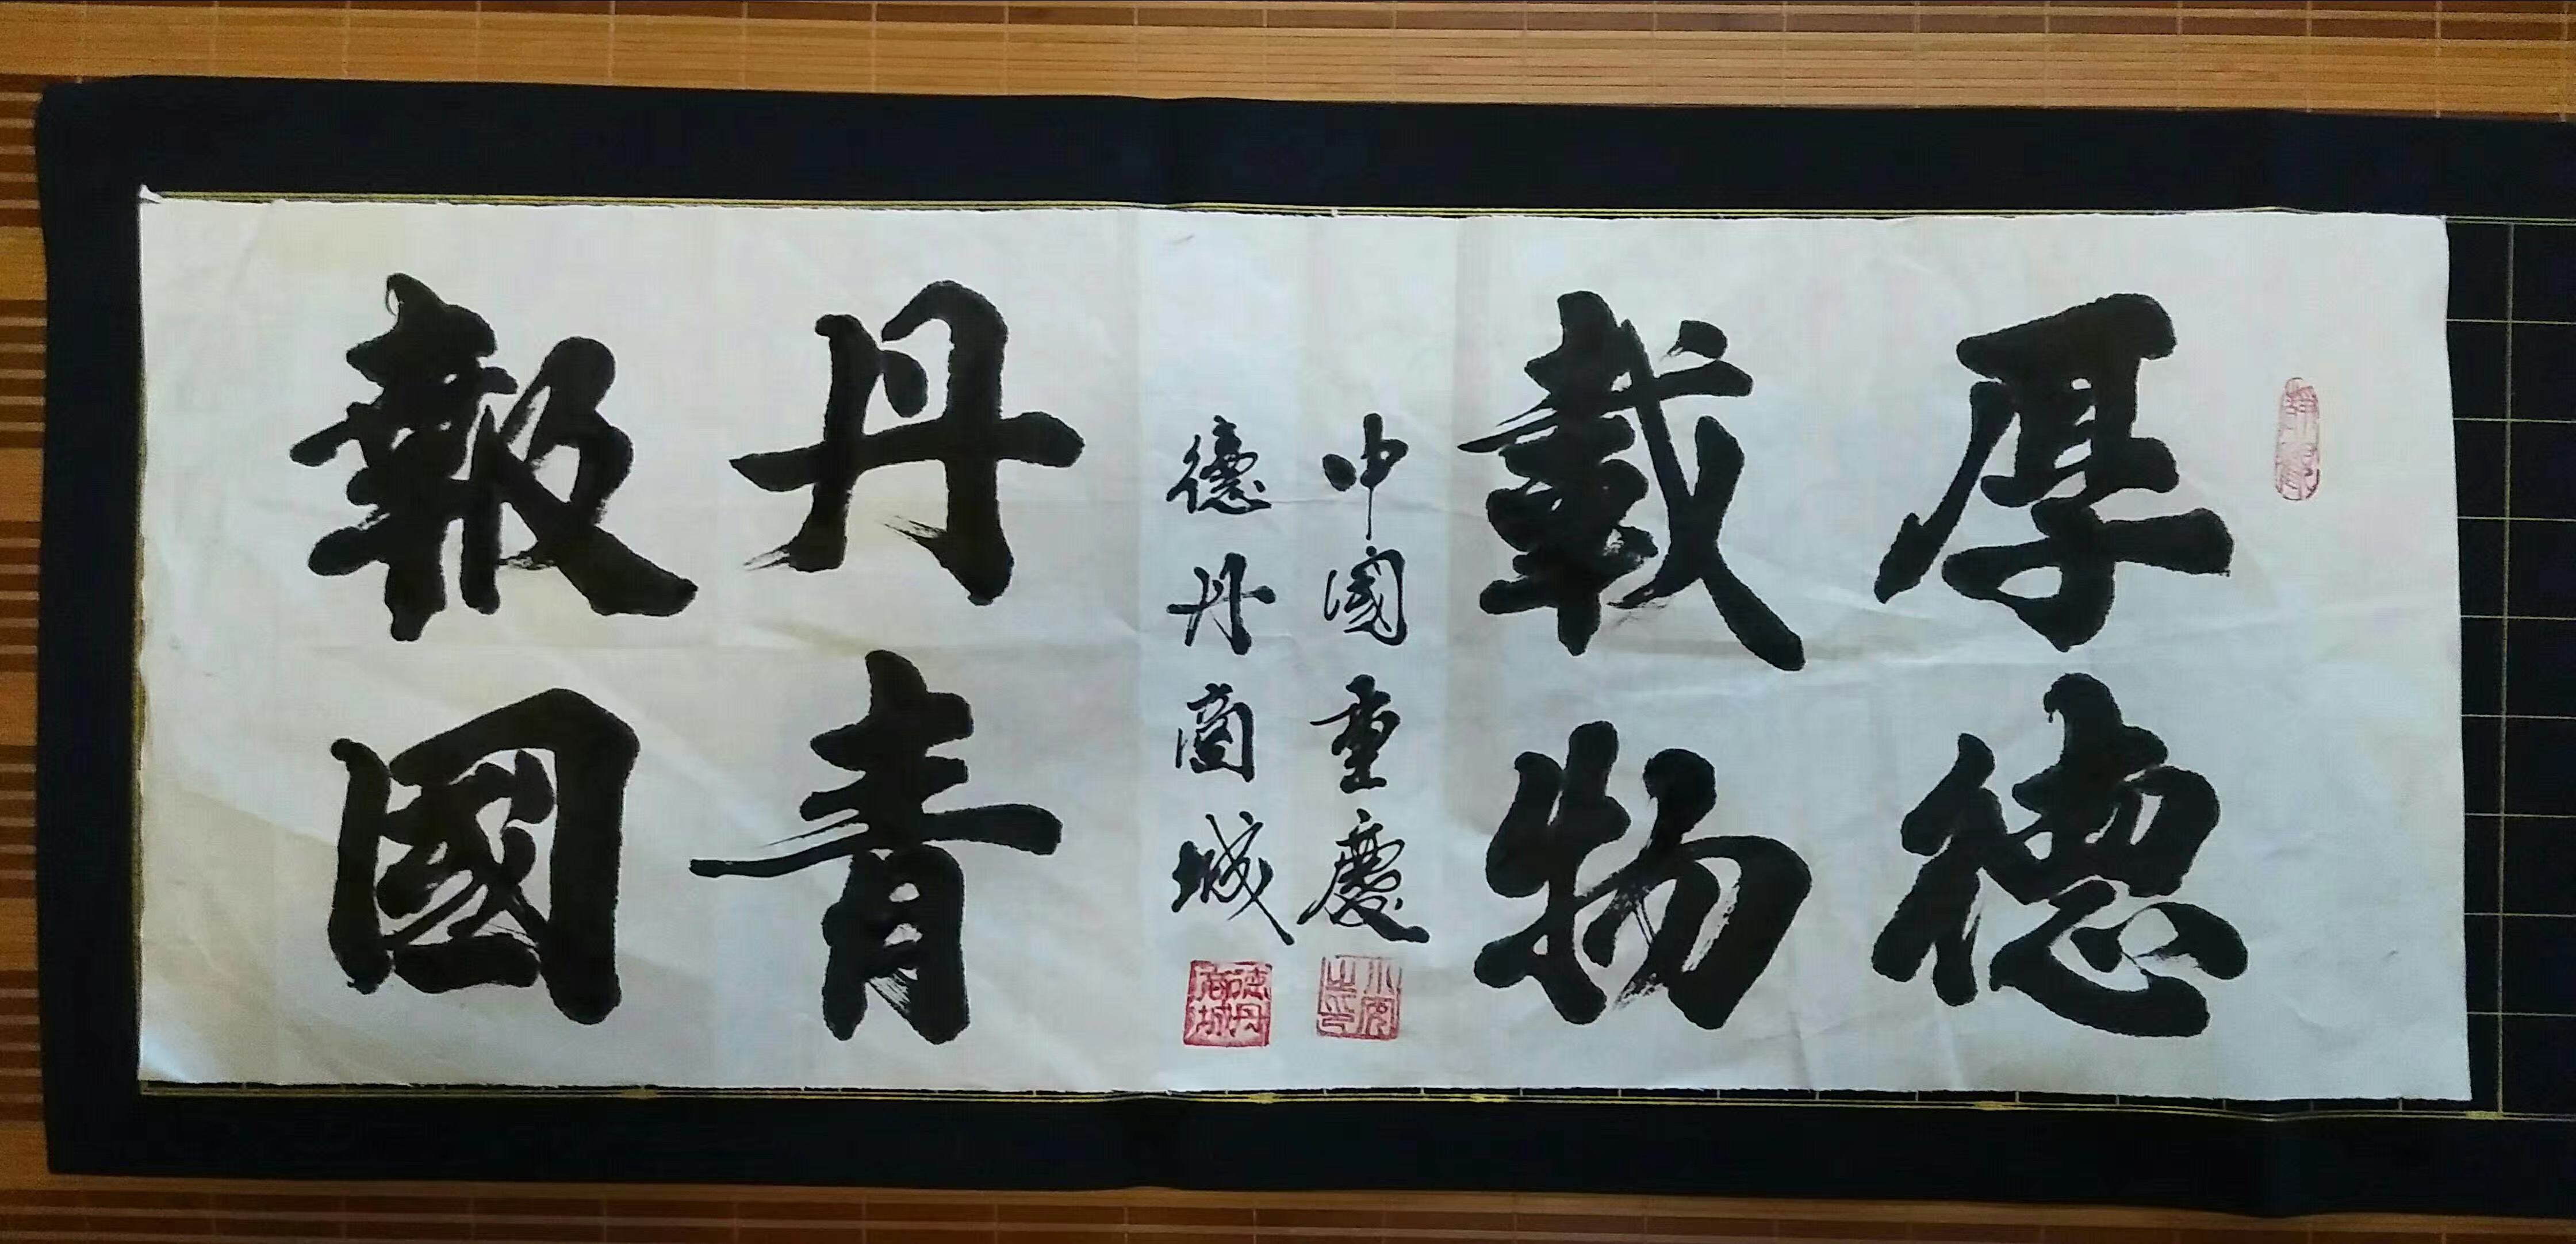 厚德
載物
中國重慶
德丹商城
德丹
商城
丹青
報國